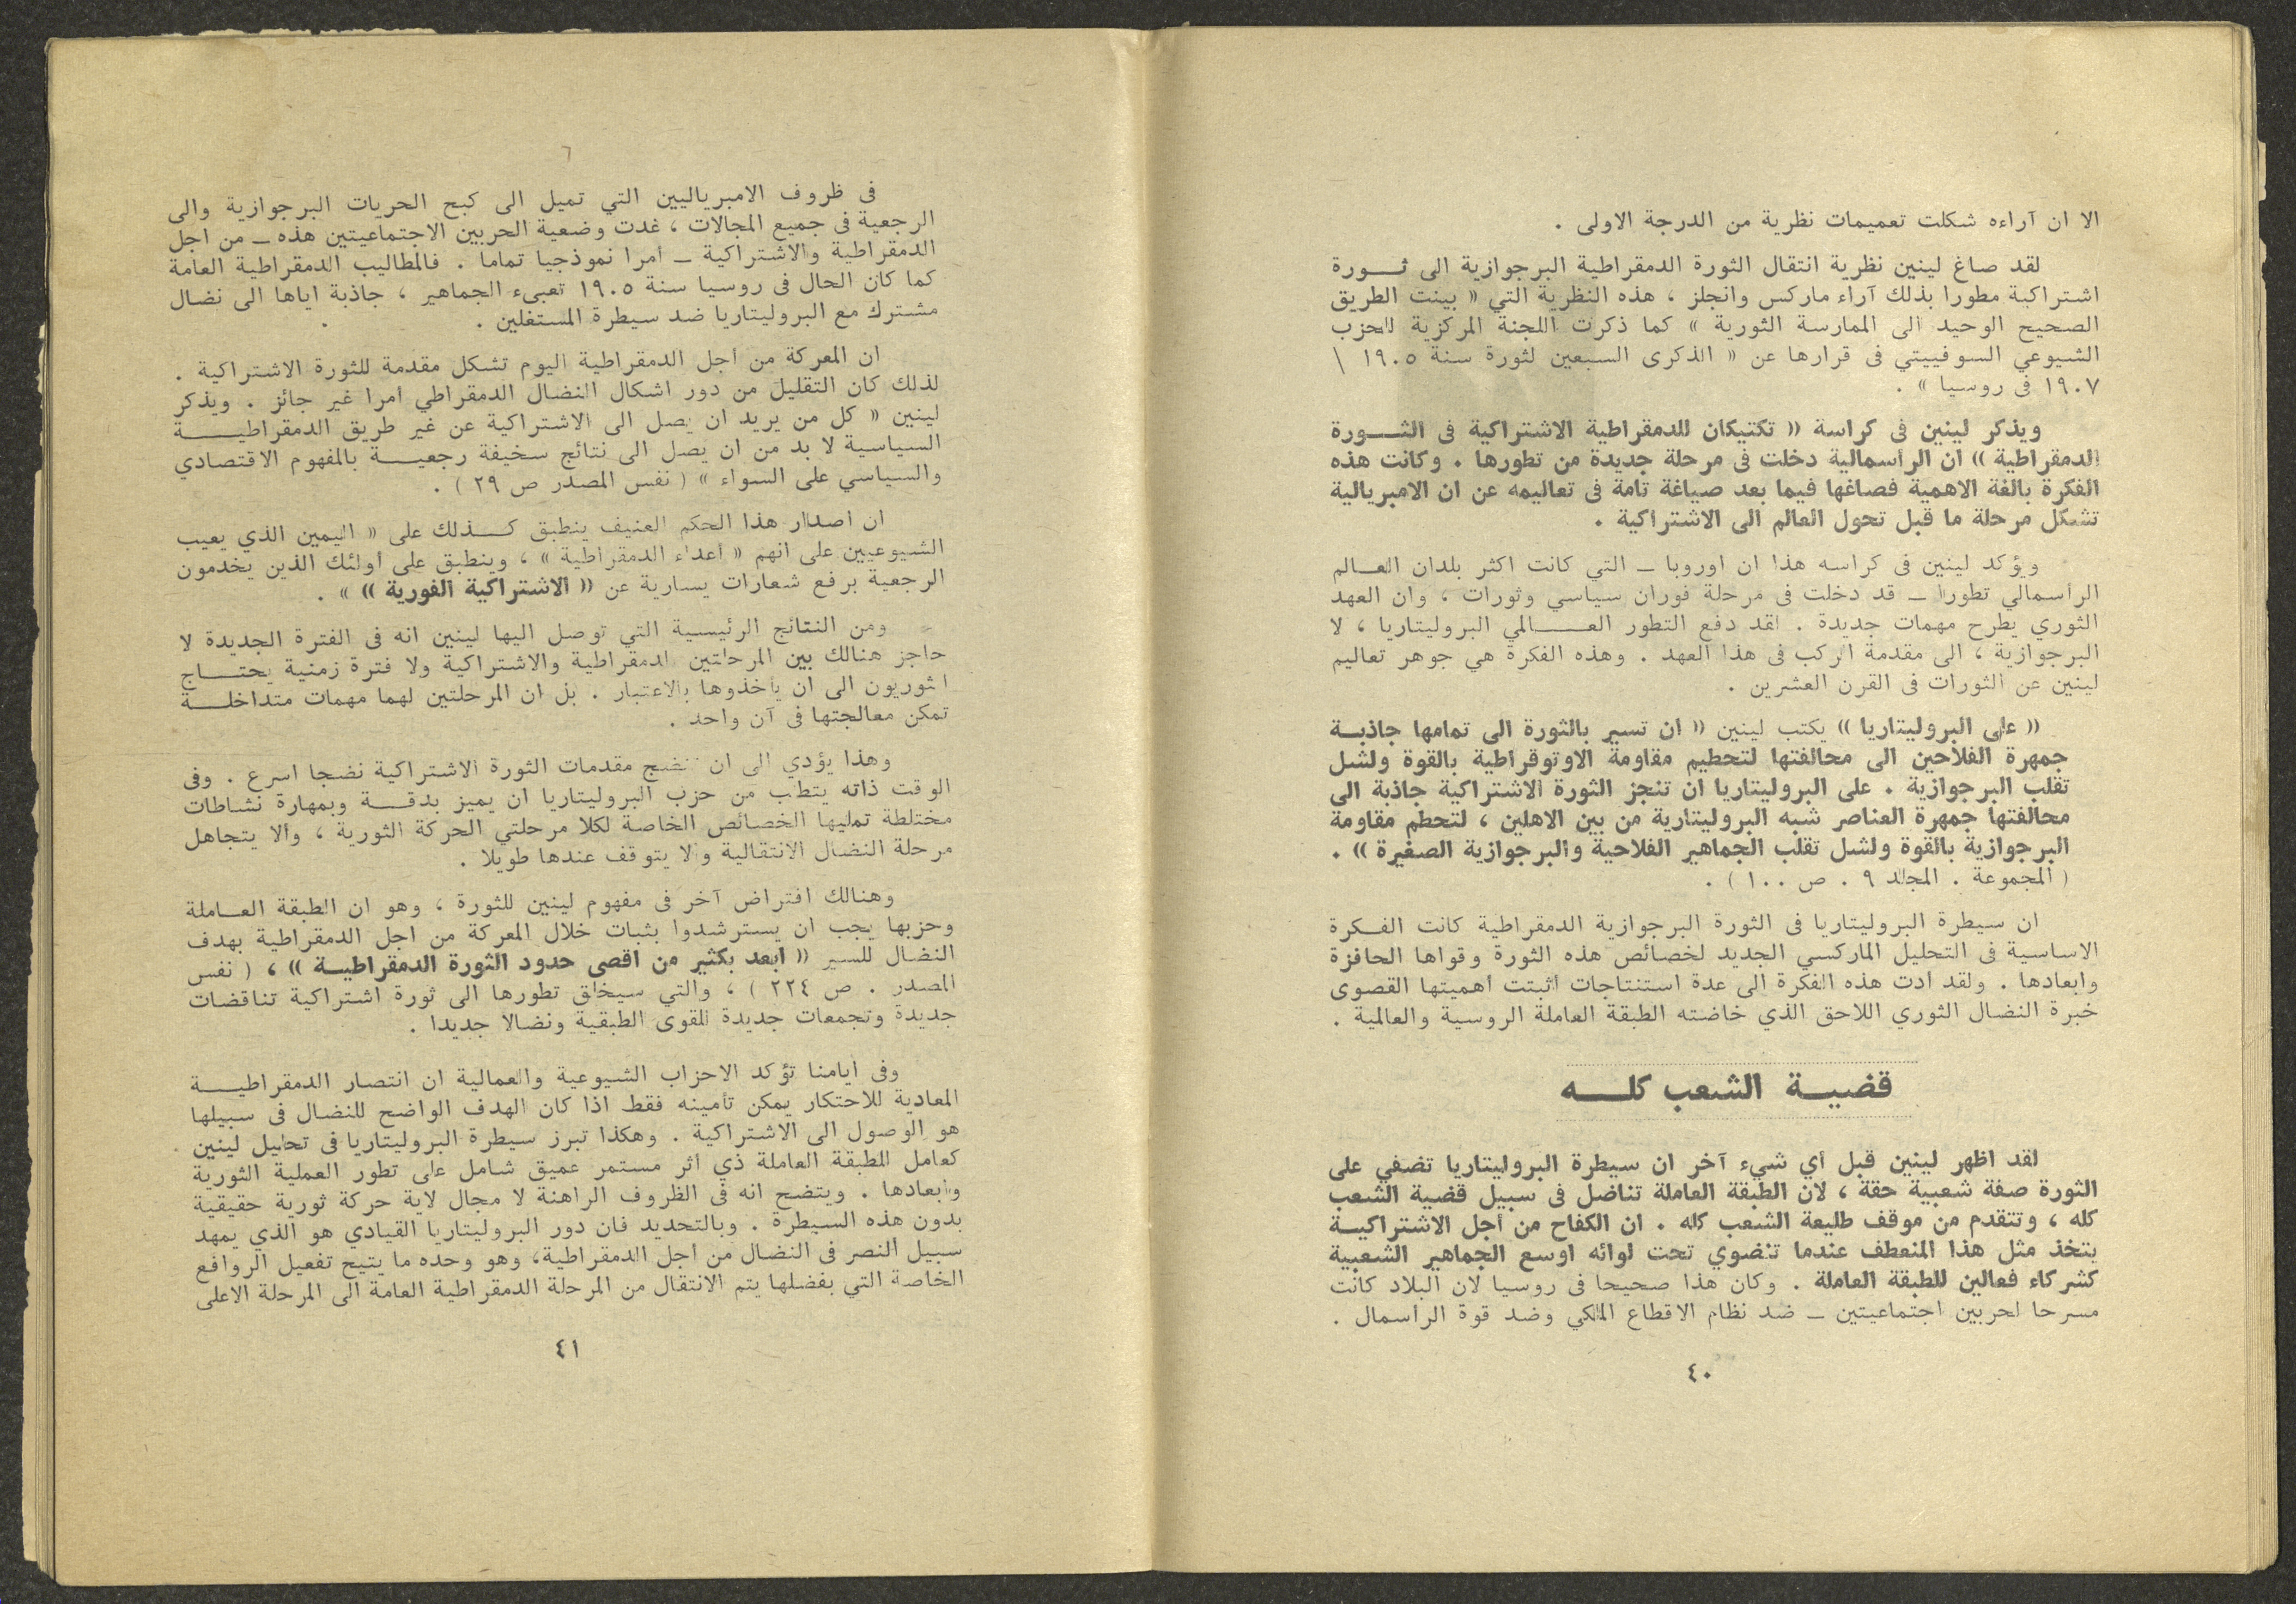 الا ان آراءه شكلت تعميمات نظرية من الدرجة الاولى .
لقد صاغ لينين نظرية انتقال الثورة الدمقراطية البرجوازية الى ثـــورة
اشتراكية مطورا بذلك آراء ماركس وانجلز ، هذه النظرية التي « بينت الطريق
الصحيح الوحيد الى الممارسة الثورية » كما ذكرت اللجنة المركزية للحزب
الشيوعي السوفييتي فى قرارها عن « الذكرى السبعين لثورة سنة ١٩٠٥ \
١٩٠٧ فى روسيا » .
ويذكر لينين فى كراسة « تكتيكان للدمقراطية الاشتراكية فى الثـــورة
الدمقراطية » ان الرأسمالية دخلت فى مرحلة جديدة من تطورها . وكانت هذه
الفكرة بالغة الاهمية فصاغها فيما بعد صياغة تامة فى تعاليمه عن ان الامبريالية
تشكل مرحلة ما قبل تحول العالم الى الاشتراكية .
ويؤكد لينين فى كراسه هذا ان اوروبا ــ التي كانت اكثر بلدان العـالم
الرأسمالي تطورا ــ قد دخلت فى مرحلة فوران سياسي وثورات ، وان العهد
الثوري يطرح مهمات جديدة . لقد دفع التطور العــــالمي البروليتاريا ، لا
البرجوازية ، الى مقدمة الركب فى هذا العهد . وهذه الفكرة هي جوهر تعاليم
لينين عن الثورات فى القرن العشرين .
« على البروليتاريا » يكتب لينين « ان تسير بالثورة الى تمامها جاذبـة
جمهرة الفلاحين الى محالفتها لتحطيم مقاومة الاوتوقراطية بالقوة ولشل
تقلب البرجوازية . على البروليتاريا ان تنجز الثورة الاشتراكية جاذبة الى
محالفتها جمهرة العناصر شبه البروليتارية من بين الاهلين ، لتحطم مقاومة
البرجوازية بالقوة ولشل تقلب الجماهير الفلاحية والبرجوازية الصغيرة » .
( المجموعة . المجلد ٩ . ص ١٠٠ ) .
ان سيطرة البروليتاريا فى الثورة البرجوازية الدمقراطية كانت الفـكرة
الاساسية فى التحليل الماركسي الجديد لخصائص هذه الثورة وقواها الحافزة
وابعادها . ولقد ادت هذه الفكرة الى عدة استنتاجات أثبتت أهميتها القصوى
خبرة النضال الثوري اللاحق الذي خاضته الطبقة العاملة الروسية والعالمية .
قضيــة الشعب كلــــه
لقد اظهر لينين قبل أي شيء آخر ان سيطرة البروليتاريا تضفي على
الثورة صفة شعبية حقة ، لان الطبقة العاملة تناضل فى سبيل قضية الشعب
كله ، وتتقدم من موقف طليعة الشعب كله . ان الكفاح من أجل الاشتراكيـة
يتخذ مثل هذا المنعطف عندما تنضوي تحت لوائه اوسع الجماهير الشعبية
كشركاء فعالين للطبقة العاملة . وكان هذا صحيحا فى روسيا لان البلاد كانت
مسرحا لحربين اجتماعيتين ــ ضد نظام الاقطاع الملكي وضد قوة الرأسمال .
٤٠
فى ظروف الامبرياليين التي تميل الى كبح الحريات البرجوازية والى
الرجعية فى جميع المجالات ، غدت وضعية الحربين الاجتماعيتين هذه ــ من اجل
الدمقراطية والاشتراكية ــ أمرا نموذجيا تماما . فالمطاليب الدمقراطية العامة
كما كان الحال فى روسيا سنة ١٩٠٥ تعبىء الجماهير ، جاذبة اياها الى نضال
مشترك مع البروليتاريا ضد سيطرة المستغلين .
ان المعركة من أجل الدمقراطية اليوم تشكل مقدمة للثورة الاشتراكية .
لذلك كان التقليل من دور اشكال النضال الدمقراطي أمرا غير جائز . ويذكر
لينين « كل من يريد ان يصل الى الاشتراكية عن غير طريق الدمقراطيــــة
السياسية لا بد من ان يصل الى نتائج سخيفة رجعيـــة بالمفهوم الاقتصادي
والسياسي على السواء » ( نفس المصدر ص ٢٩ ) .
ان اصدار هذا الحكم العنيف ينطبق كـــذلك على « اليمين الذي يعيب
الشيوعيين على انهم « أعداء الدمقراطية » ، وينطبق على اولئك الذين يخدمون
الرجعية برفع شعارات يسارية عن « الاشتراكية الفورية » » .
ومن النتائج الرئيسية التي توصل اليها لينين انه فى الفترة الجديدة لا
حاجز هنالك بين المرحلتين الدمقراطية والاشتراكية ولا فترة زمنية يحتـــاج
الثوريون الى ان يأخذوها بالاعتبار . بل ان المرحلتين لهما مهمات متداخلـــة
تمكن معالجتها فى آن واحد .
وهذا يؤدي الى ان تنضج مقدمات الثورة الاشتراكية نضجا اسرع . وفى
الوقت ذاته يتطلب من حزب البروليتاريا ان يميز بدقـــة وبمهارة نشاطات
مختلطة تمليها الخصائص الخاصة لكلا مرحلتي الحركة الثورية ، والا يتجاهل
مرحلة النضال الانتقالية والا يتوقف عندها طويلا .
وهنالك افتراض آخر فى مفهوم لينين للثورة ، وهو ان الطبقة العـاملة
وحزبها يجب ان يسترشدوا بثبات خلال المعركة من اجل الدمقراطية بهدف
النضال للسير « ابعد بكثير من اقصى حدود الثورة الدمقراطيـة » ، ( نفس
المصدر . ص ٢٢٤ ) ، والتي سيخلق تطورها الى ثورة اشتراكية تناقضات
جديدة وتجمعات جديدة للقوى الطبقية ونضالا جديدا .
وفى ايامنا تؤكد الاحزاب الشيوعية والعمالية ان انتصار الدمقراطيــــة
المعادية للاحتكار يمكن تأمينه فقط اذا كان الهدف الواضح للنضال فى سبيلها
هو الوصول الى الاشتراكية . وهكذا تبرز سيطرة البروليتاريا فى تحليل لينين
كعامل للطبقة العاملة ذي اثر مستمر عميق شامل على تطور العملية الثورية
وابعادها . ويتضح انه فى الظروف الراهنة لا مجال لاية حركة ثورية حقيقية
بدون هذه السيطرة . وبالتحديد فان دور البروليتاريا القيادي هو الذي يمهد
سبيل النصر فى النضال من اجل الدمقراطية، وهو وحده ما يتيح تفعيل الروافع
الخاصة التي بفضلها يتم الانتقال من المرحلة الدمقراطية العامة الى المرحلة الاعلى
٤١